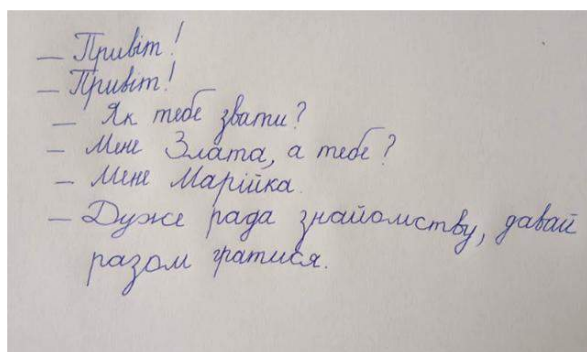 — Привіт!
— Привіт!
— Як тебе звати?
— Мене Злата, а тебе?
— Мене Марійка.
— Дуже рада знайомству, давай
разом гратися.